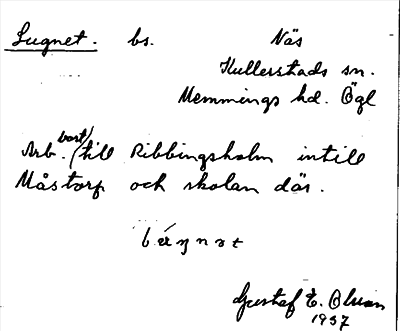 Lugnet. bs. Näs
Kullerstads sn.
Memmings hd. Ögl
Arb.bost/till Ribbingsholm intill
Måstorp och skolan där.
Gustaf E. Olsson
1937